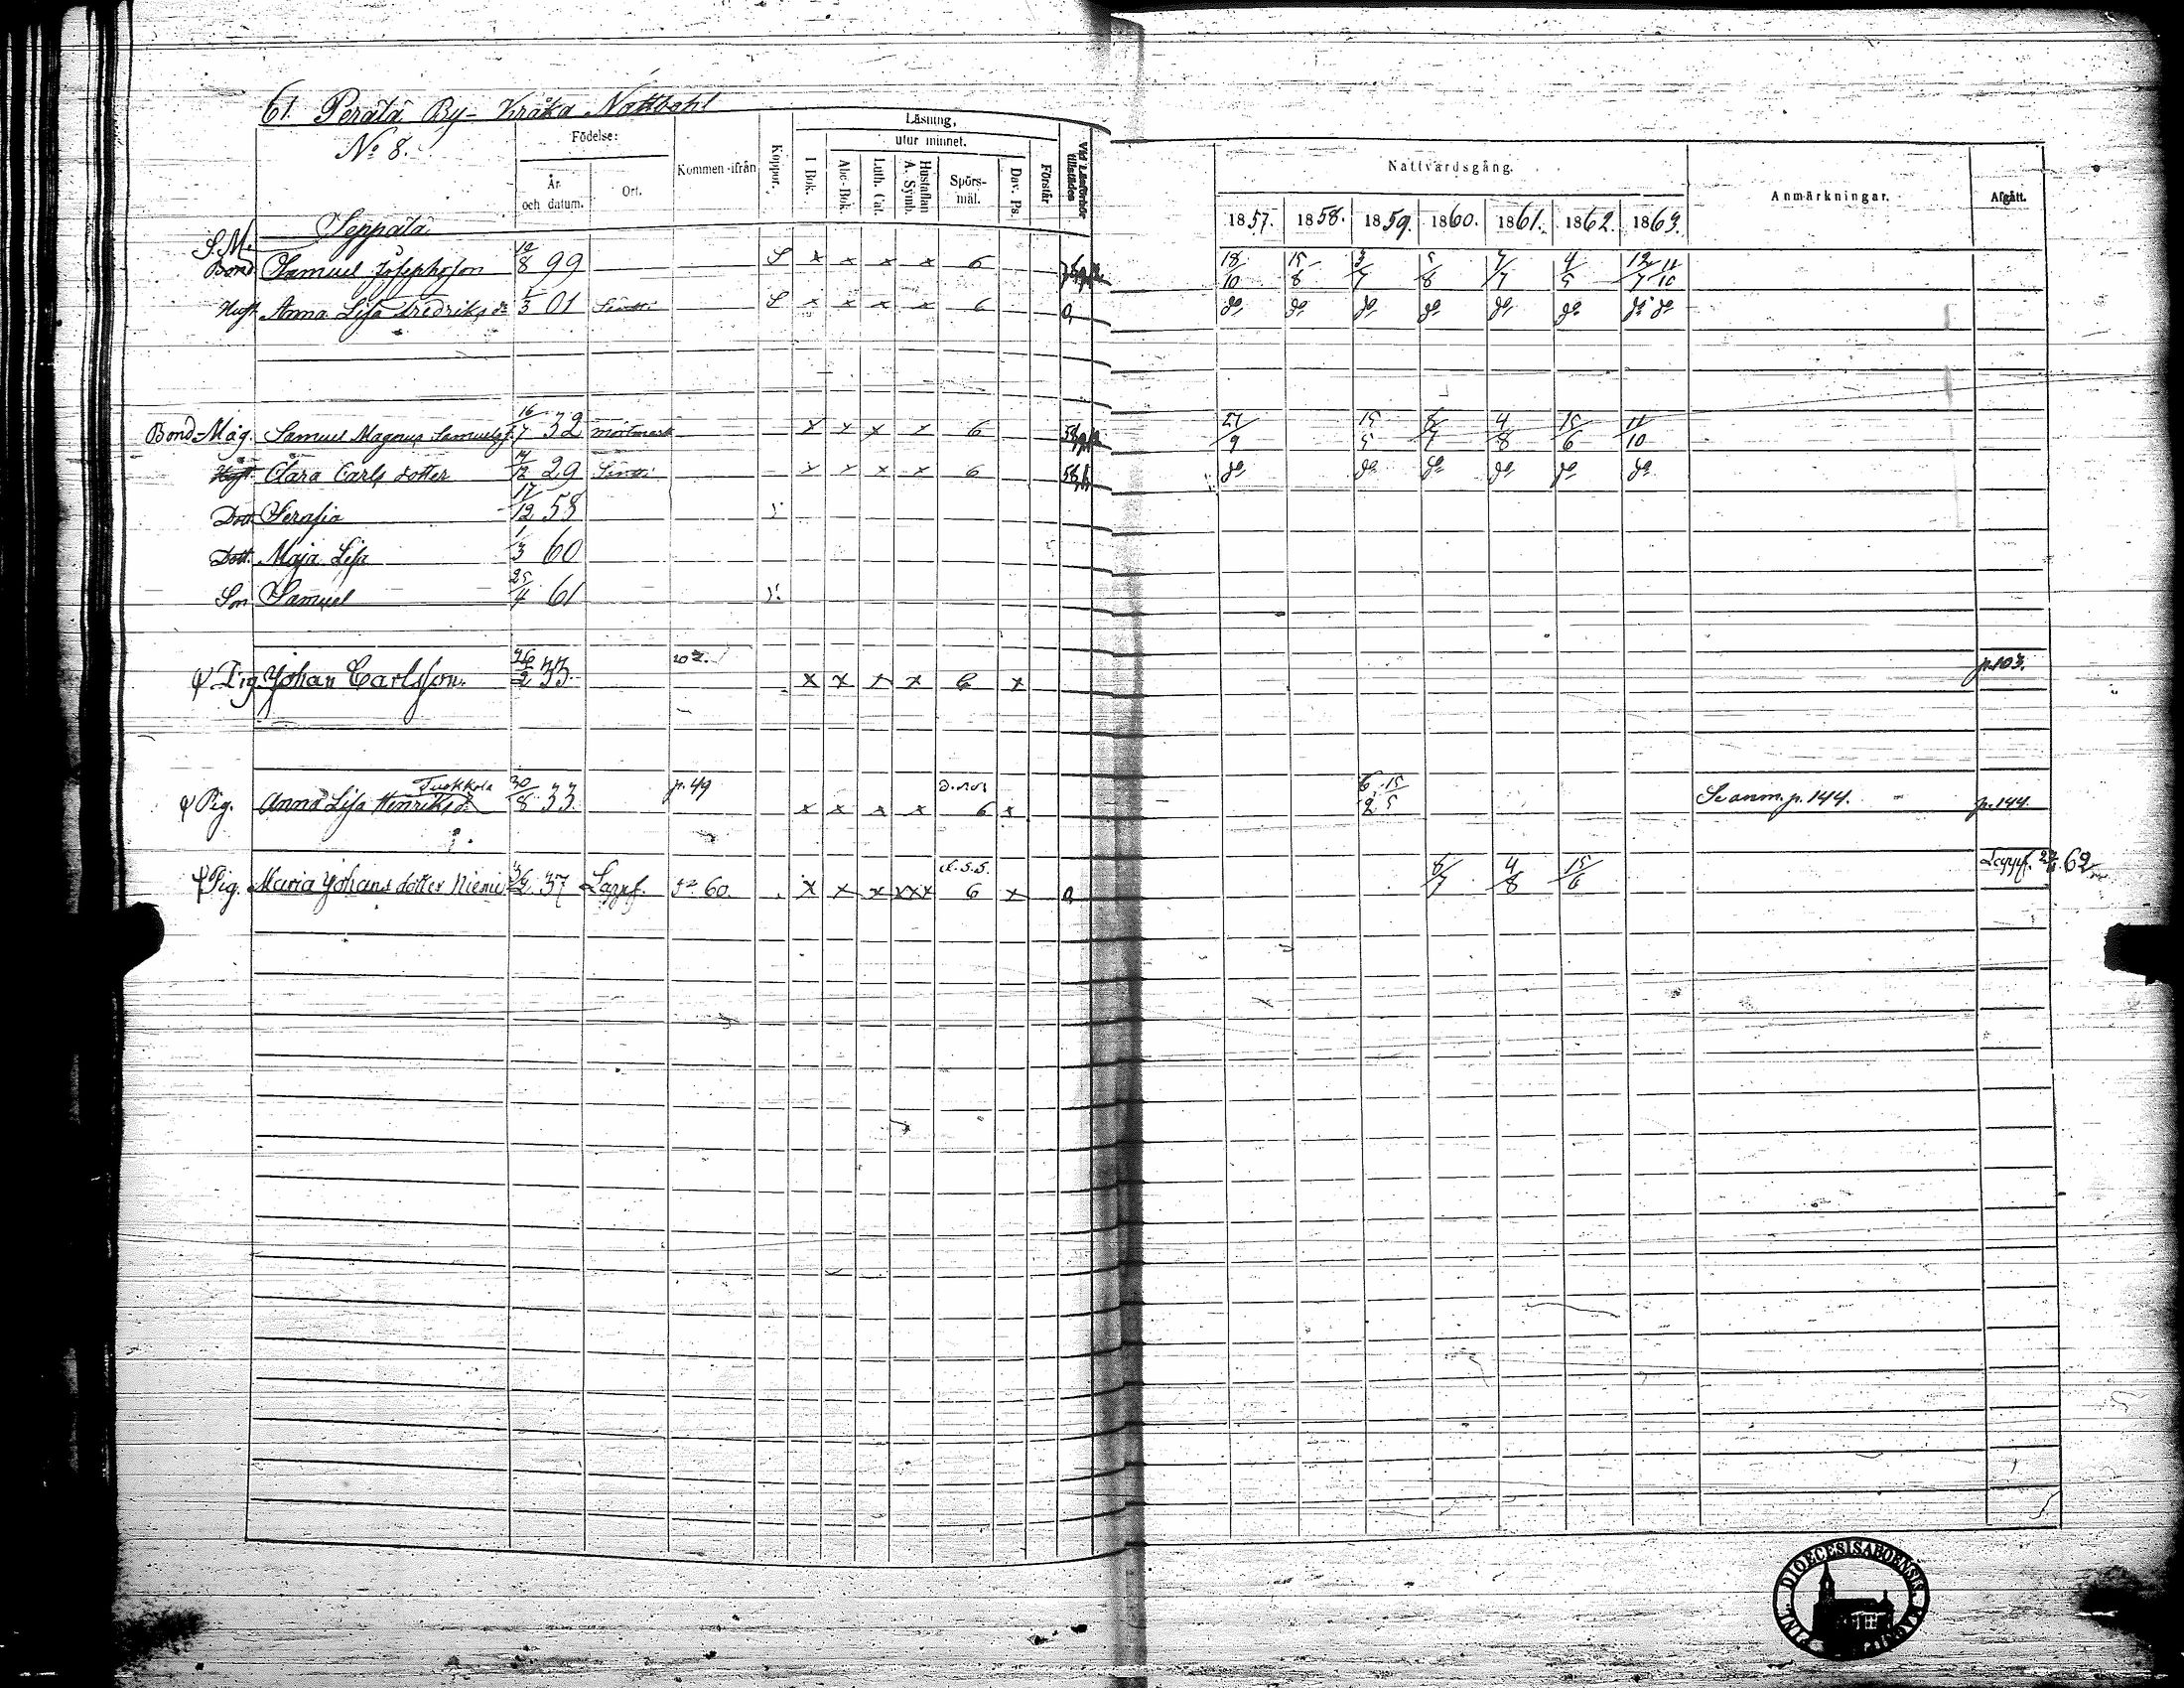 61. Perälä By- Kråka Nattbohl
No 8.
Födelse:
År och datum.
Ort.
Kommen ifrån
Koppor.
Läsning,
utur minnet.
I Bok.
Abc-Bok.
Luth. Cat.
Hustaflan A. Symb.
Spörsmål.
Dav. Ps.
Förstår
Vid Läsförhör tillstädes
Nattvardsgång.
1857. 1858. 1859. 1860. 1861. 1862. 1863.
Anmärkningar.
Afgått.
Seppälä
S.M.
Bond Samuel Josephsson 12/8 99 S x x x x 6 18/10 15/8 3/7 5/8 7/7 4/5 12/7 11/10
Hust. Anna Lisa Fredriksdr 1/3 01 S x x x x 6 do do do do do do do do
Bond-Måg. Samuel Magnus Samuelss. 16/7 32 Mörtmark x x x x 6 27/9 15/5 8/7 4/8 15/6 11/10
Hust. Clara Carls dotter 14/12 29 x x x x 6 do do do do do do
Dott Serafia 17/12 58
Dott. Maja Lisa 1/3 60
Son Samuel 25/4 61
Drg. Johan Carlsson. 26/2 33. 102. x x x x 6 x p.103.
Pig. Anna Lisa Henriksdr Tuokkola 30/8 33. p. 49 x x x x 6 x 6/2 15/5 Se anm. p. 144. p. 144.
Pig. Maria Johans dotter Niemi 37 Lappf. 60. x x x xxx 6 x 8/7 4/8 15/6 Lappf. 62
DIOECESIS ABOENSIS